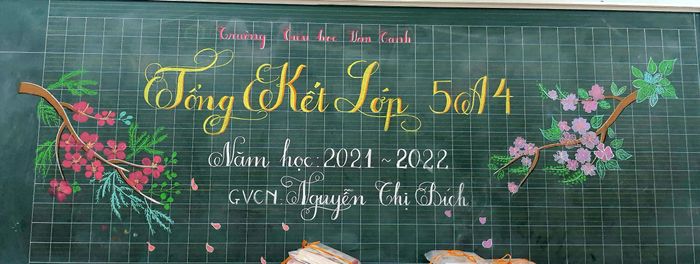 Trường Tiểu học Vân Canh
Tổng Kết Lớp 5A4
Năm học: 2021 ~ 2022
GVCN: Nguyễn Thị Bích